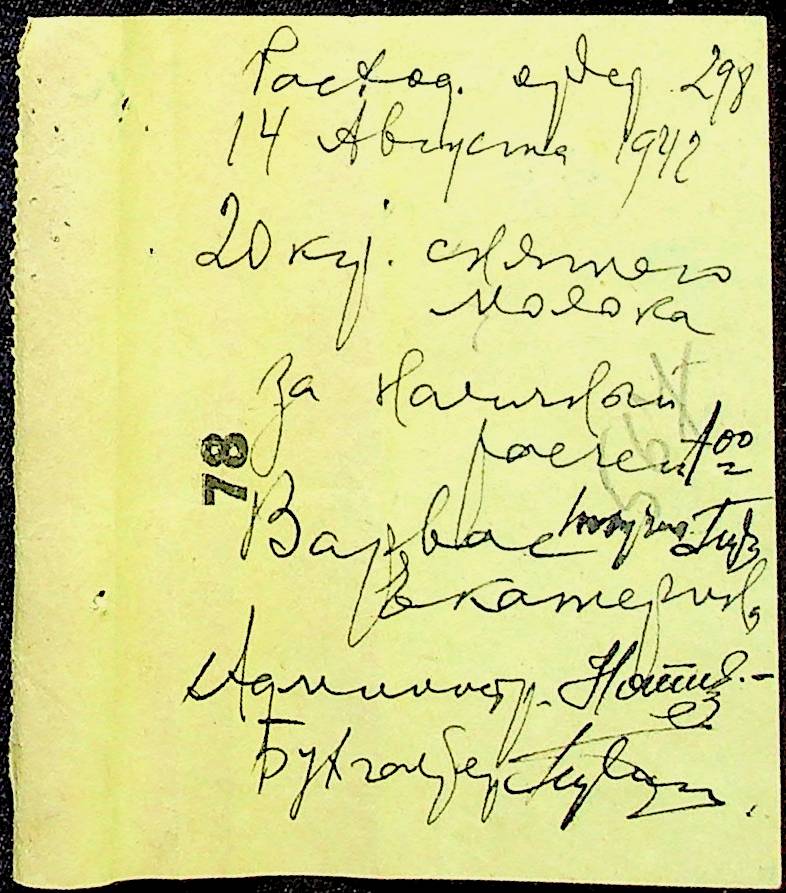 Расход. ордер 298
14 Августа 1942
20 кг. снятого
молока
за наличный
расчет
78
Варвас
Екатерин.
Администр.
Бухгалтер